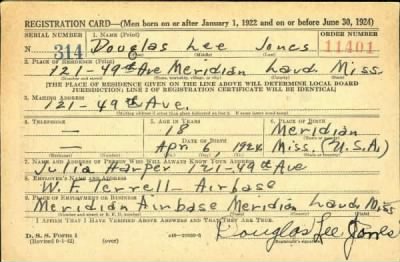 REGISTRATION CARD—(Men born on or after January 1, 1922 and on or before June 30, 1924)
SERIAL NUMBER 1. NAME (Print) ORDER NUMBER
N 314 Douglas Lee Jones 11401
(First) (Middle) (Last)
2. PLACE OF RESIDENCE (Print)
121-49th Ave Meridian Laud. Miss.
(Number and street) (Town, township, village, or city) (County) (State)
[THE PLACE OF RESIDENCE GIVEN ON THE LINE ABOVE WILL DETERMINE LOCAL BOARD
JURISDICTION; LINE 2 OF REGISTRATION CERTIFICATE WILL BE IDENTICAL]
3. MAILING ADDRESS
121-49th Ave.
[Mailing address if other than place indicated on line 2. If same insert word same]
4. TELEPHONE 5. AGE IN YEARS 6. PLACE OF BIRTH
— 18 Meridian
DATE OF BIRTH
— Apr 6, 1924 Miss. (U.S.A)
7. NAME AND ADDRESS OF PERSON WHO WILL ALWAYS KNOW YOUR ADDRESS
Harper 121-49th Ave
8. EMPLOYER'S NAME AND ADDRESS
W.F. Terrell - Airbase
9. PLACE OF EMPLOYMENT OR BUSINESS
Meridian Airbase Meridian Laud. Miss
(Number and street or R. F. D. number) (Town) (County) (State)
I AFFIRM THAT I HAVE VERIFIED ABOVE ANSWERS AND THAT THEY ARE TRUE.
D. S. S. Form 1
(Revised 6-1-42) (over) Douglas Lee Jones
(Registrant's signature)